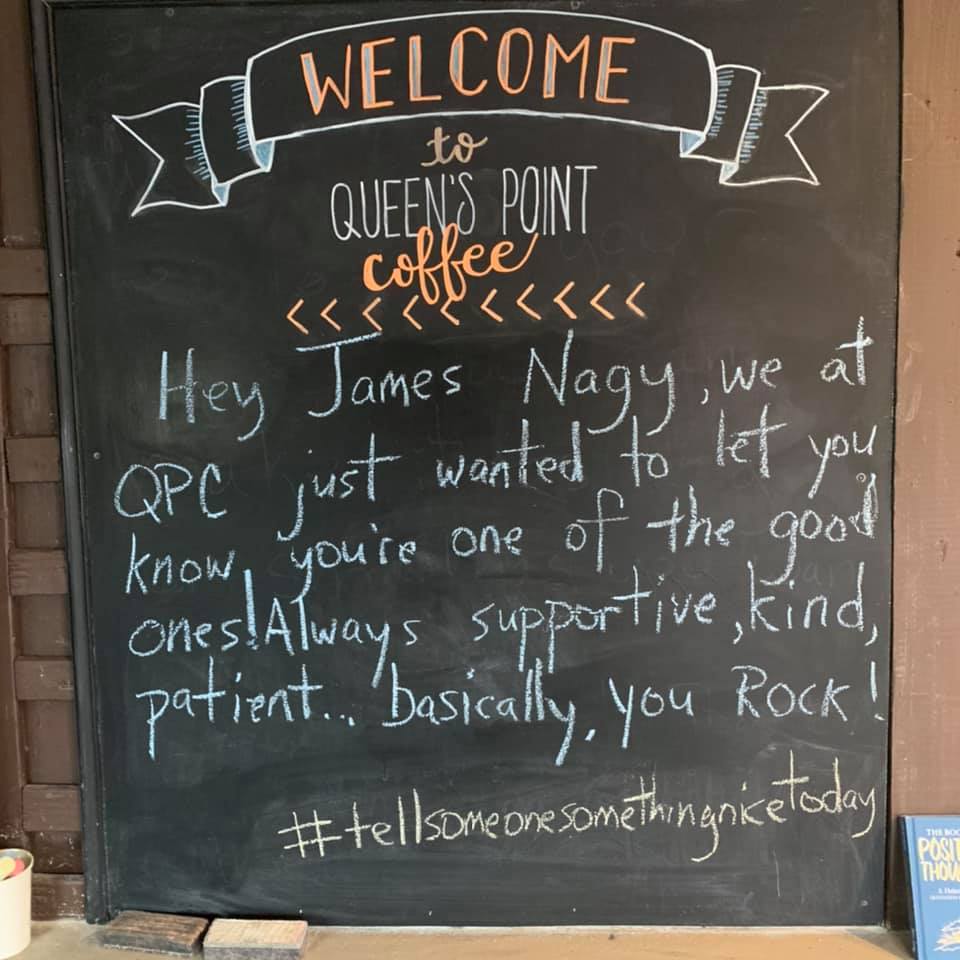 WELCOME
to
QUEEN'S POINT
coffee
<<<<<<<<<<
Hey James Nagy, we at
QPC just wanted to let you
know, you're one of the good
ones! Always supportive, kind,
patient... basically, you Rock!
#tellsomeonesomethingnicetoday
THE